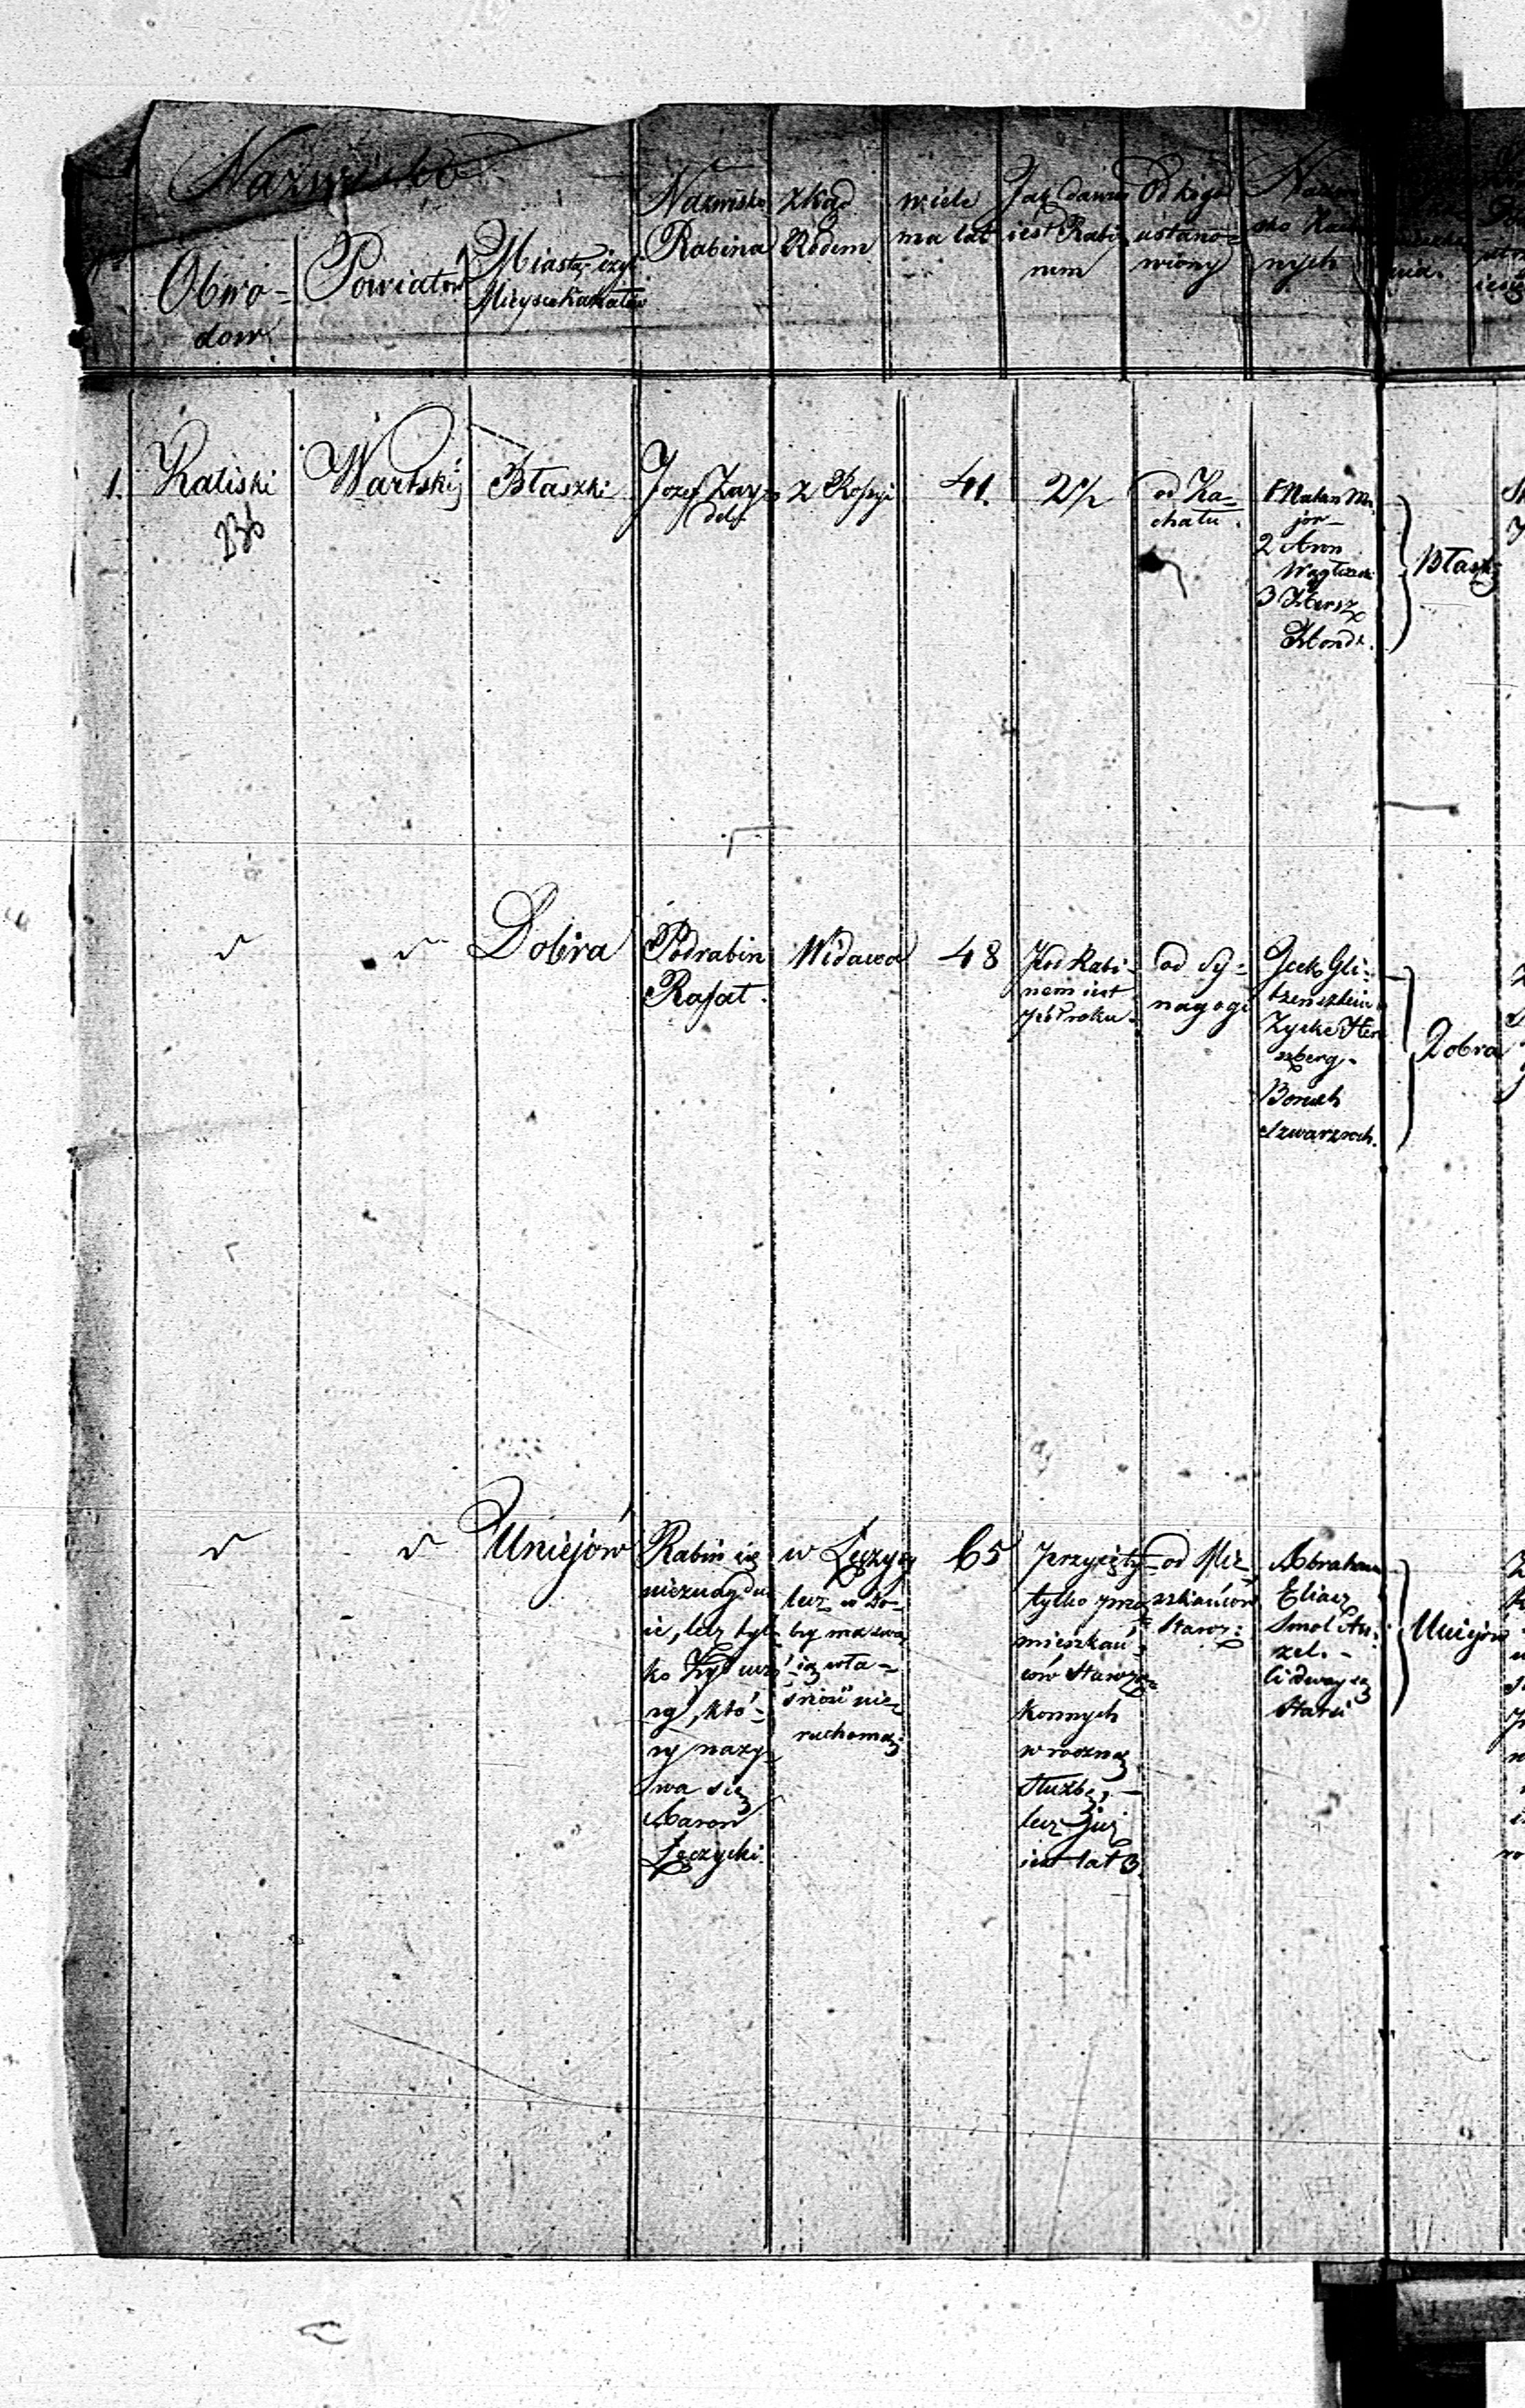 Nazwisko
Obwo-
dow
Powiatow
Miasta, czyli
Mieysca Kahałów
Nazwisko
Rabina
zkąd
Rodem
wiele
ma lat
Jak dawno
iest Rabi
nem
Od kogo
ustano-
wiony
1.
Kaliski
236
Wartski
Błaszki
Jozef Zay-
del
z Rossyi
41.
2½
od Ka-
chału.
1 Natan Ma-
jor
2 Aron
3 Hersz
Błaszki
Dobra
Podrabin
Rafał.
Widawa
48
Pod Rabi-
nem iest
puł roku.
od Sy-
nagogi
Icek Gli-
Zyske Her-
szberg.
Boruch
Szwarzroch.
Dobra
Uniejów
Rabin się
nieznaydu
ie, lecz tyl-
ko
ry, któ-
ry nazy-
wa się
Aaron
Łęczycki.
w Łęczycy
lecz w Do-
bry ma swo
ią wła-
sność nie-
ruchomą
65
przyięty
tylko przez
mieszkań-
ców Staroza-
konnych
w roczną
służbę, -
lecz już
iest lat 3.
od Mie-
szkańców
Staroz:
Abraham
Eliasz
Smol An-
zel. -
ci dway są
Starsi
Uniejów